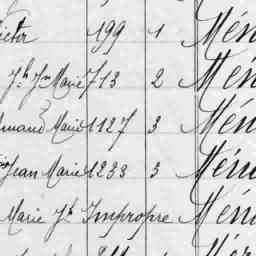 199 1 Mén
Jh Jn Marie 713 2 Mén
Marie 1127 3 Mén
Jean Marie 1233 3 Mén
Marie Jh Impropre Mén